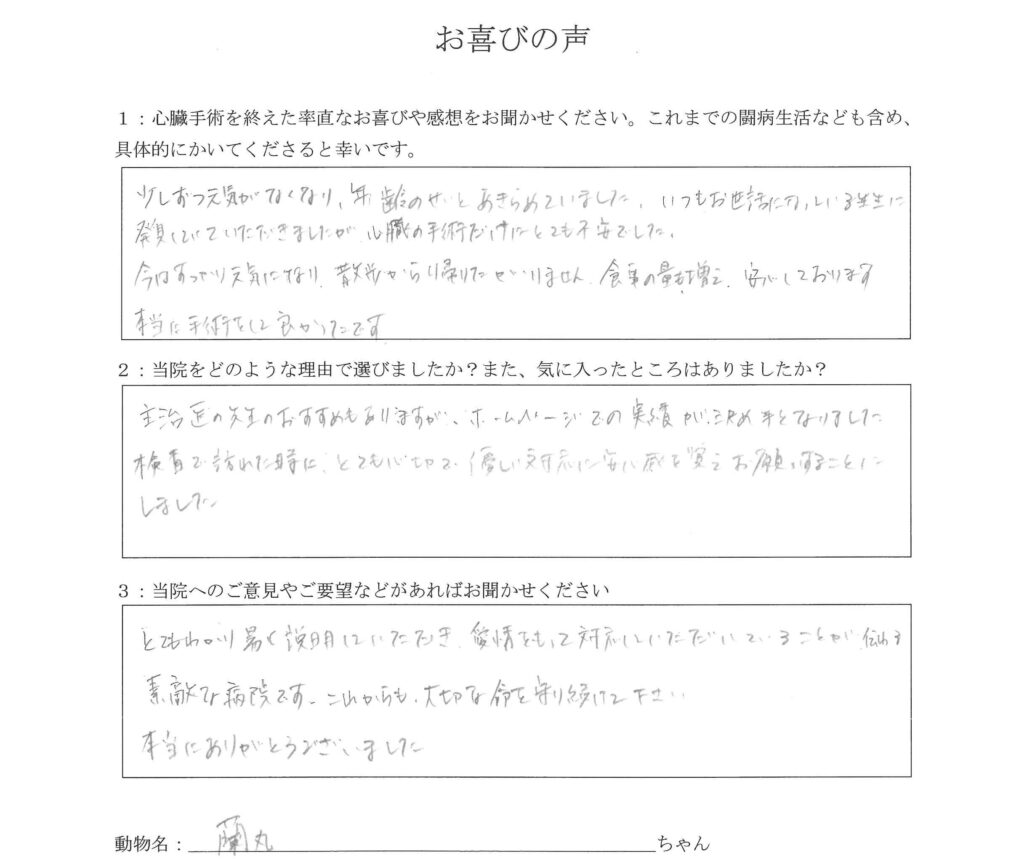 お喜びの声
1：心臓手術を終えた率直なお喜びや感想をお聞かせください。これまでの闘病生活なども含め、
具体的にかいてくださると幸いです。
少しずつ元気がなくなり、年齢のせいとあきらめていました。いつもお世話になっている先生に
発見していただきましたが、心臓の手術だけにとても不安でした。
今はすっかり元気になり、散歩から帰りたがりません。食事の量も増え、安心しております
本当に手術をして良かったです
2：当院をどのような理由で選びましたか？また、気に入ったところはありましたか？
主治医の先生のおすすめもありますが、ホームページでの実績が決め手となりました
検査で訪れた時に、とても親切で、優しい対応に安心感を覚えお願いすることに
しました
3：当院へのご意見やご要望などがあればお聞かせください
とてもわかり易く説明していただき、愛情をもって対応していただいていることが、伝わる
素敵な病院です。これからも、大切な命を守り続けて下さい
本当にありがとうございました
動物名：蘭丸ちゃん